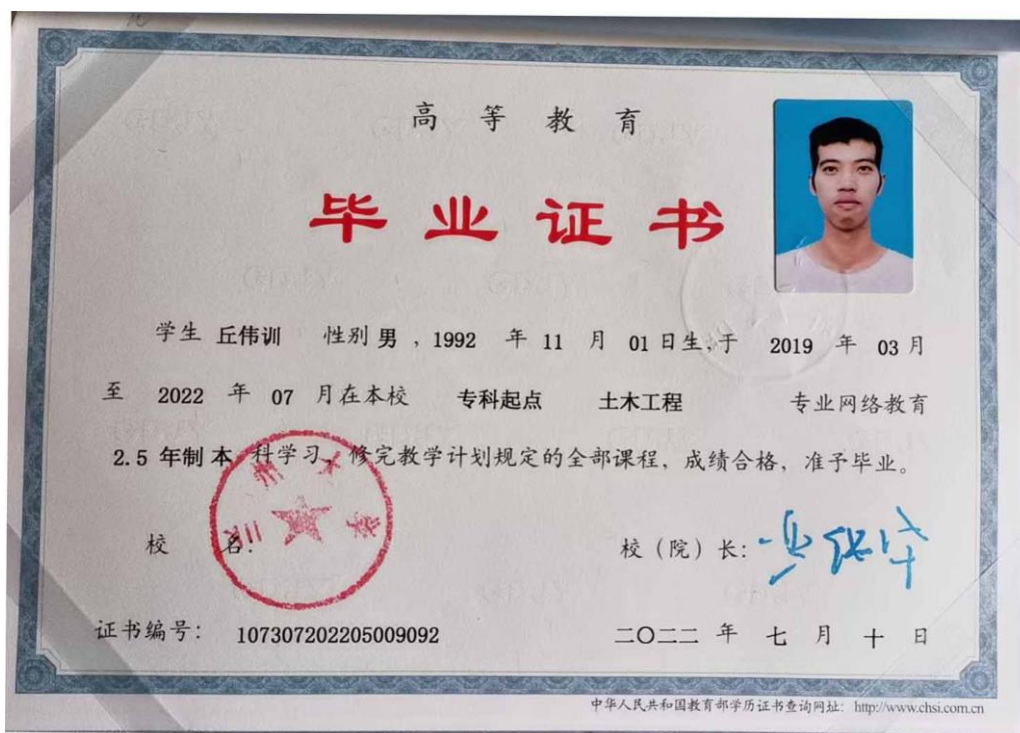 高等教育
毕业证书
学生 丘伟训 性别 男 , 1992 年 11 月 01 日生,于 2019 年 03 月
至 2022 年 07 月在本校 专科起点 土木工程 专业网络教育
2.5 年制 本 科学习,修完教学计划规定的全部课程,成绩合格,准予毕业。
兰州大学
校 名: 校(院)长:
证书编号: 107307202205009092 二〇二二 年 七 月 十 日
中华人民共和国教育部学历证书查询网址: http://www.chsi.com.cn